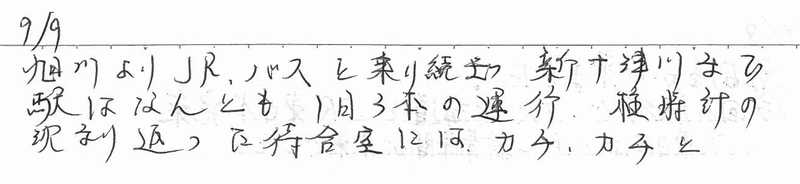 9/9
旭川よりJR、バスと乗り続き 新十津川まで
駅はなんとも 1日3本の運行 、柱時計の
沈まり返った待合室には、カチ、カチと